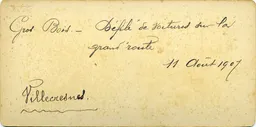 Gros Bois - Défilé de voitures sur la
grand'route
11 Août 1907
Villecresnes.